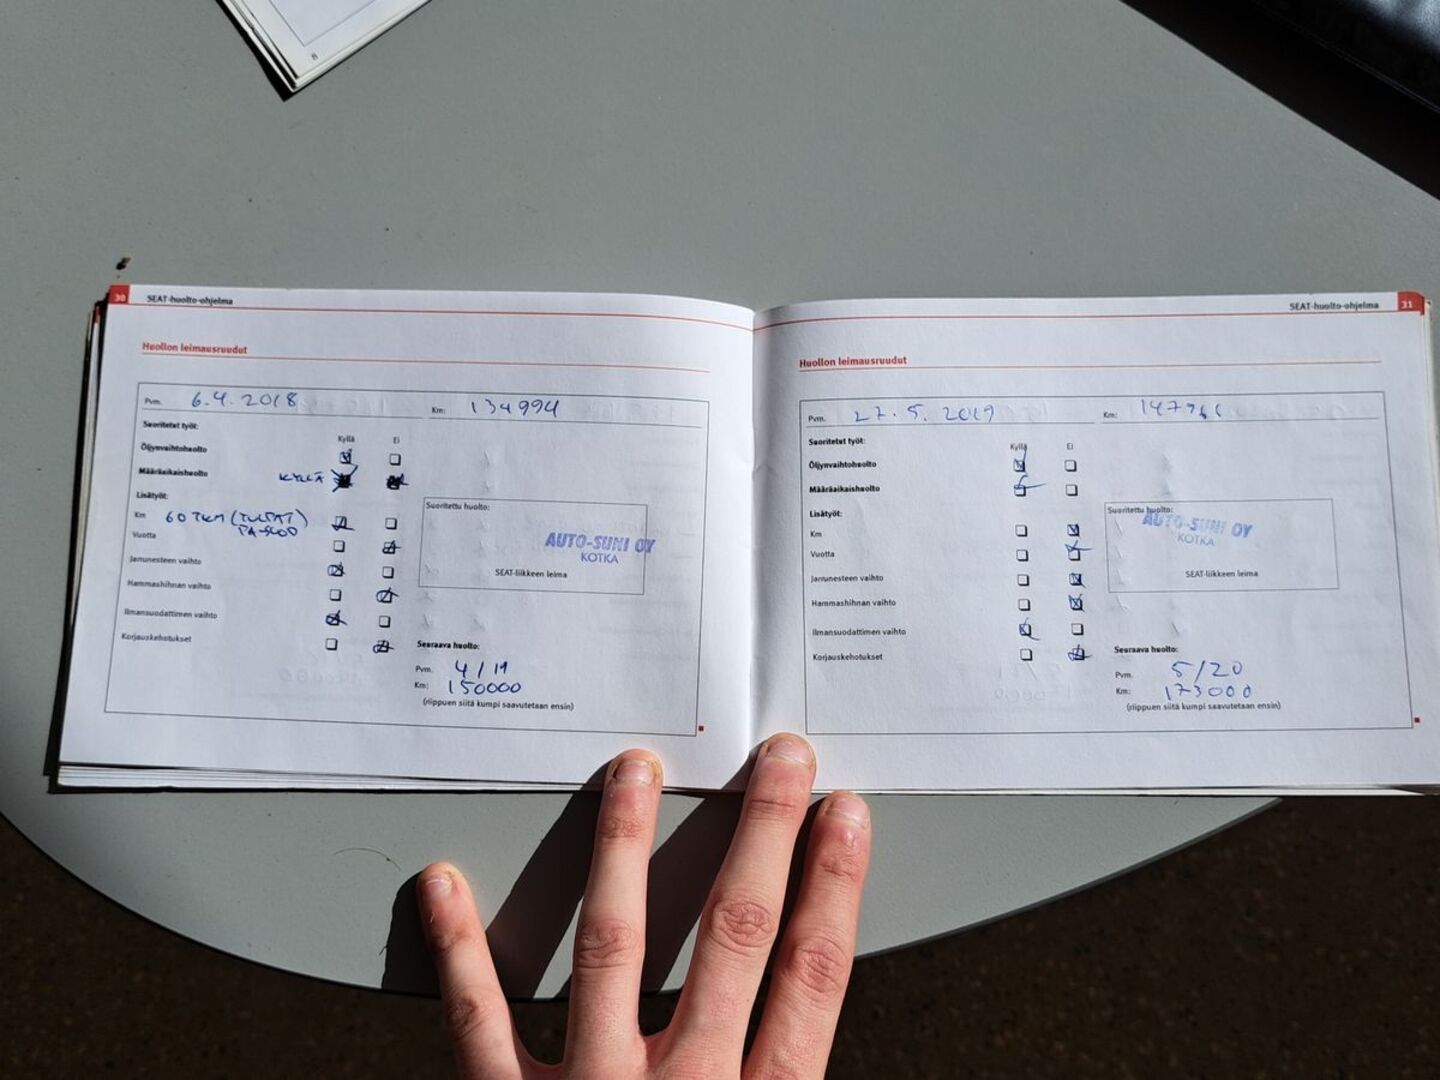 8
30 SEAT-huolto-ohjelma
Huollon leimausruudut
Pvm. 6.4.2018 Km: 134994
Suoritetut työt:
Kyllä Ei
Öljynvaihtohuolto
Määräaikaishuolto KYLLÄ
Lisätyöt:
Km 60 TKM (TULPAT)
Vuotta
Jarrunesteen vaihto
Hammashihnan vaihto
Ilmansuodattimen vaihto
Korjauskehotukset
Suoritettu huolto:
AUTO-SUNI OY
KOTKA
SEAT-liikkeen leima
Seuraava huolto:
Pvm. 4/19
Km: 150000
(riippuen siitä kumpi saavutetaan ensin)
SEAT-huolto-ohjelma 31
Huollon leimausruudut
Pvm. 27.5.2019 Km:
Suoritetut työt:
Kyllä Ei
Öljynvaihtohuolto
Määräaikaishuolto
Lisätyöt:
Km
Vuotta
Jarrunesteen vaihto
Hammashihnan vaihto
Ilmansuodattimen vaihto
Korjauskehotukset
Suoritettu huolto:
AUTO-SUNI OY
KOTKA
SEAT-liikkeen leima
Seuraava huolto:
Pvm. 5/20
Km: 173000
(riippuen siitä kumpi saavutetaan ensin)